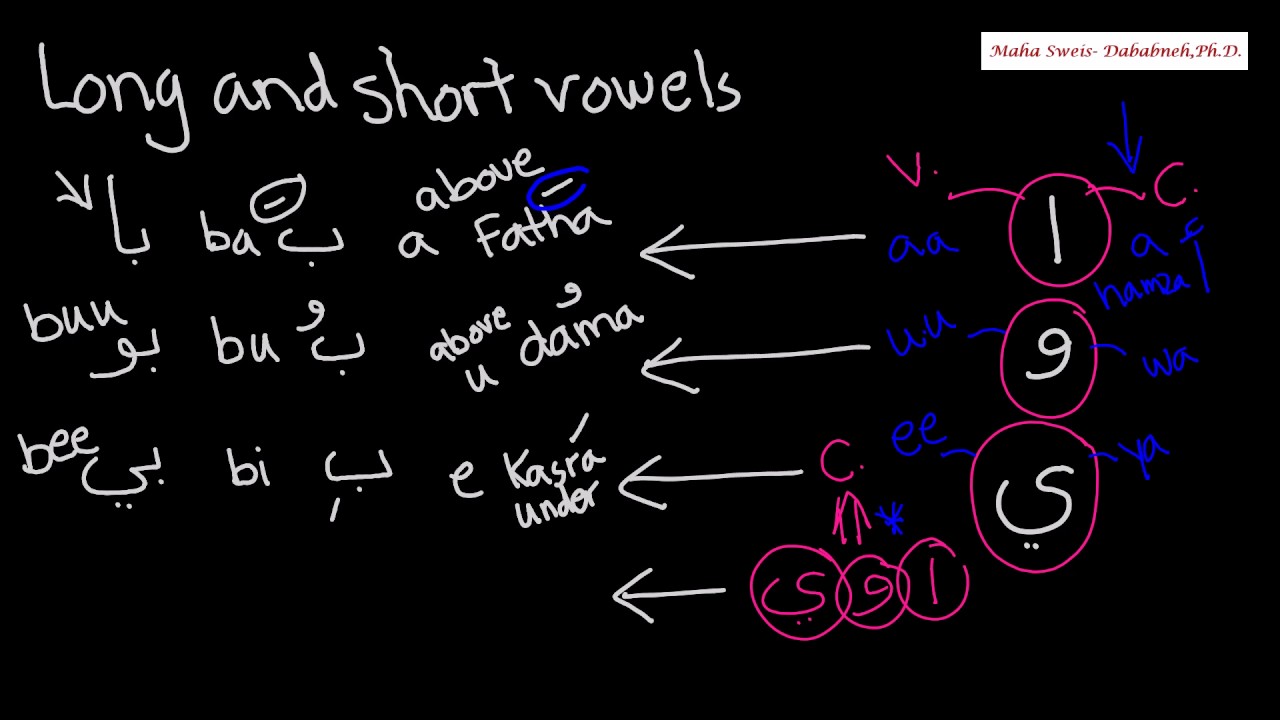 Maha Sweis- Dababneh,Ph.D.
Long and short vowels
با ba بَ a above Fatha
buu بو bu بُ above u dama
bee بي bi بِ e Kasra under
V. ا C.
aa a ء
hamza أ
uu و wa
ee ي ya
C.
ي و ا